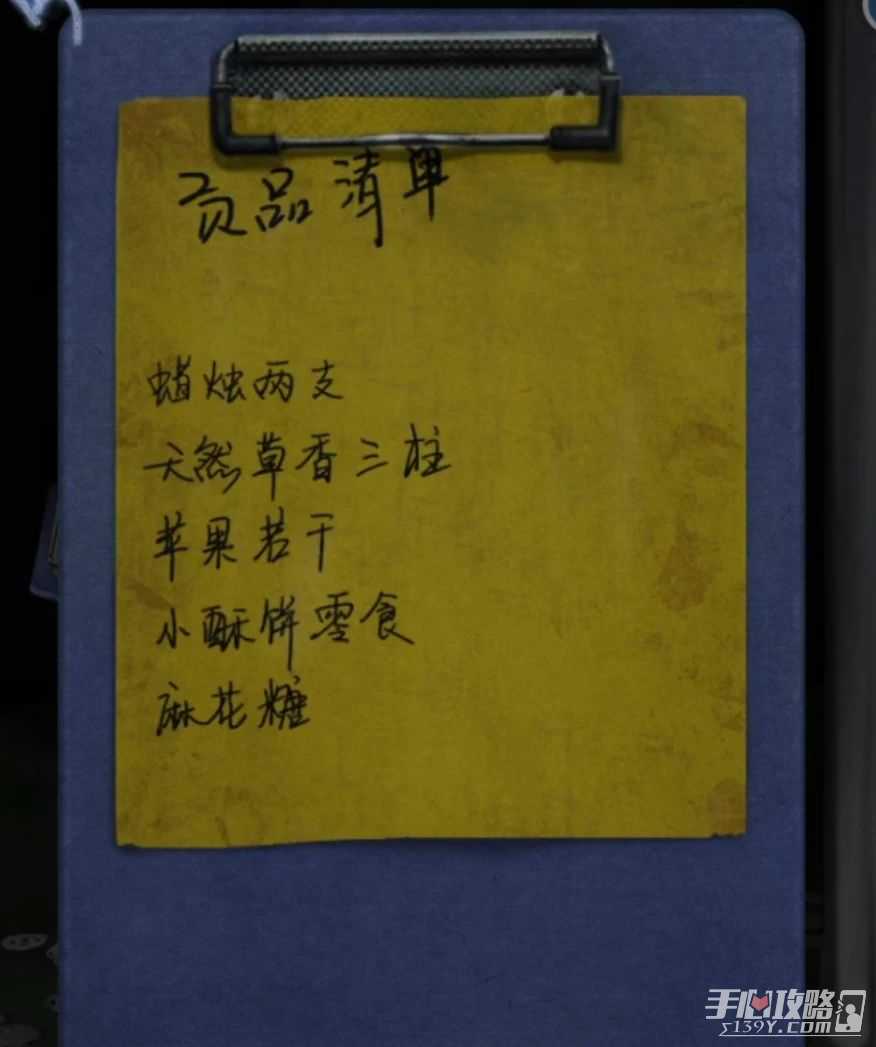 贡品清单
蜡烛两支
天然草香三柱
苹果若干
小酥饼零食
麻花糖
手心攻略
5139Y.COM